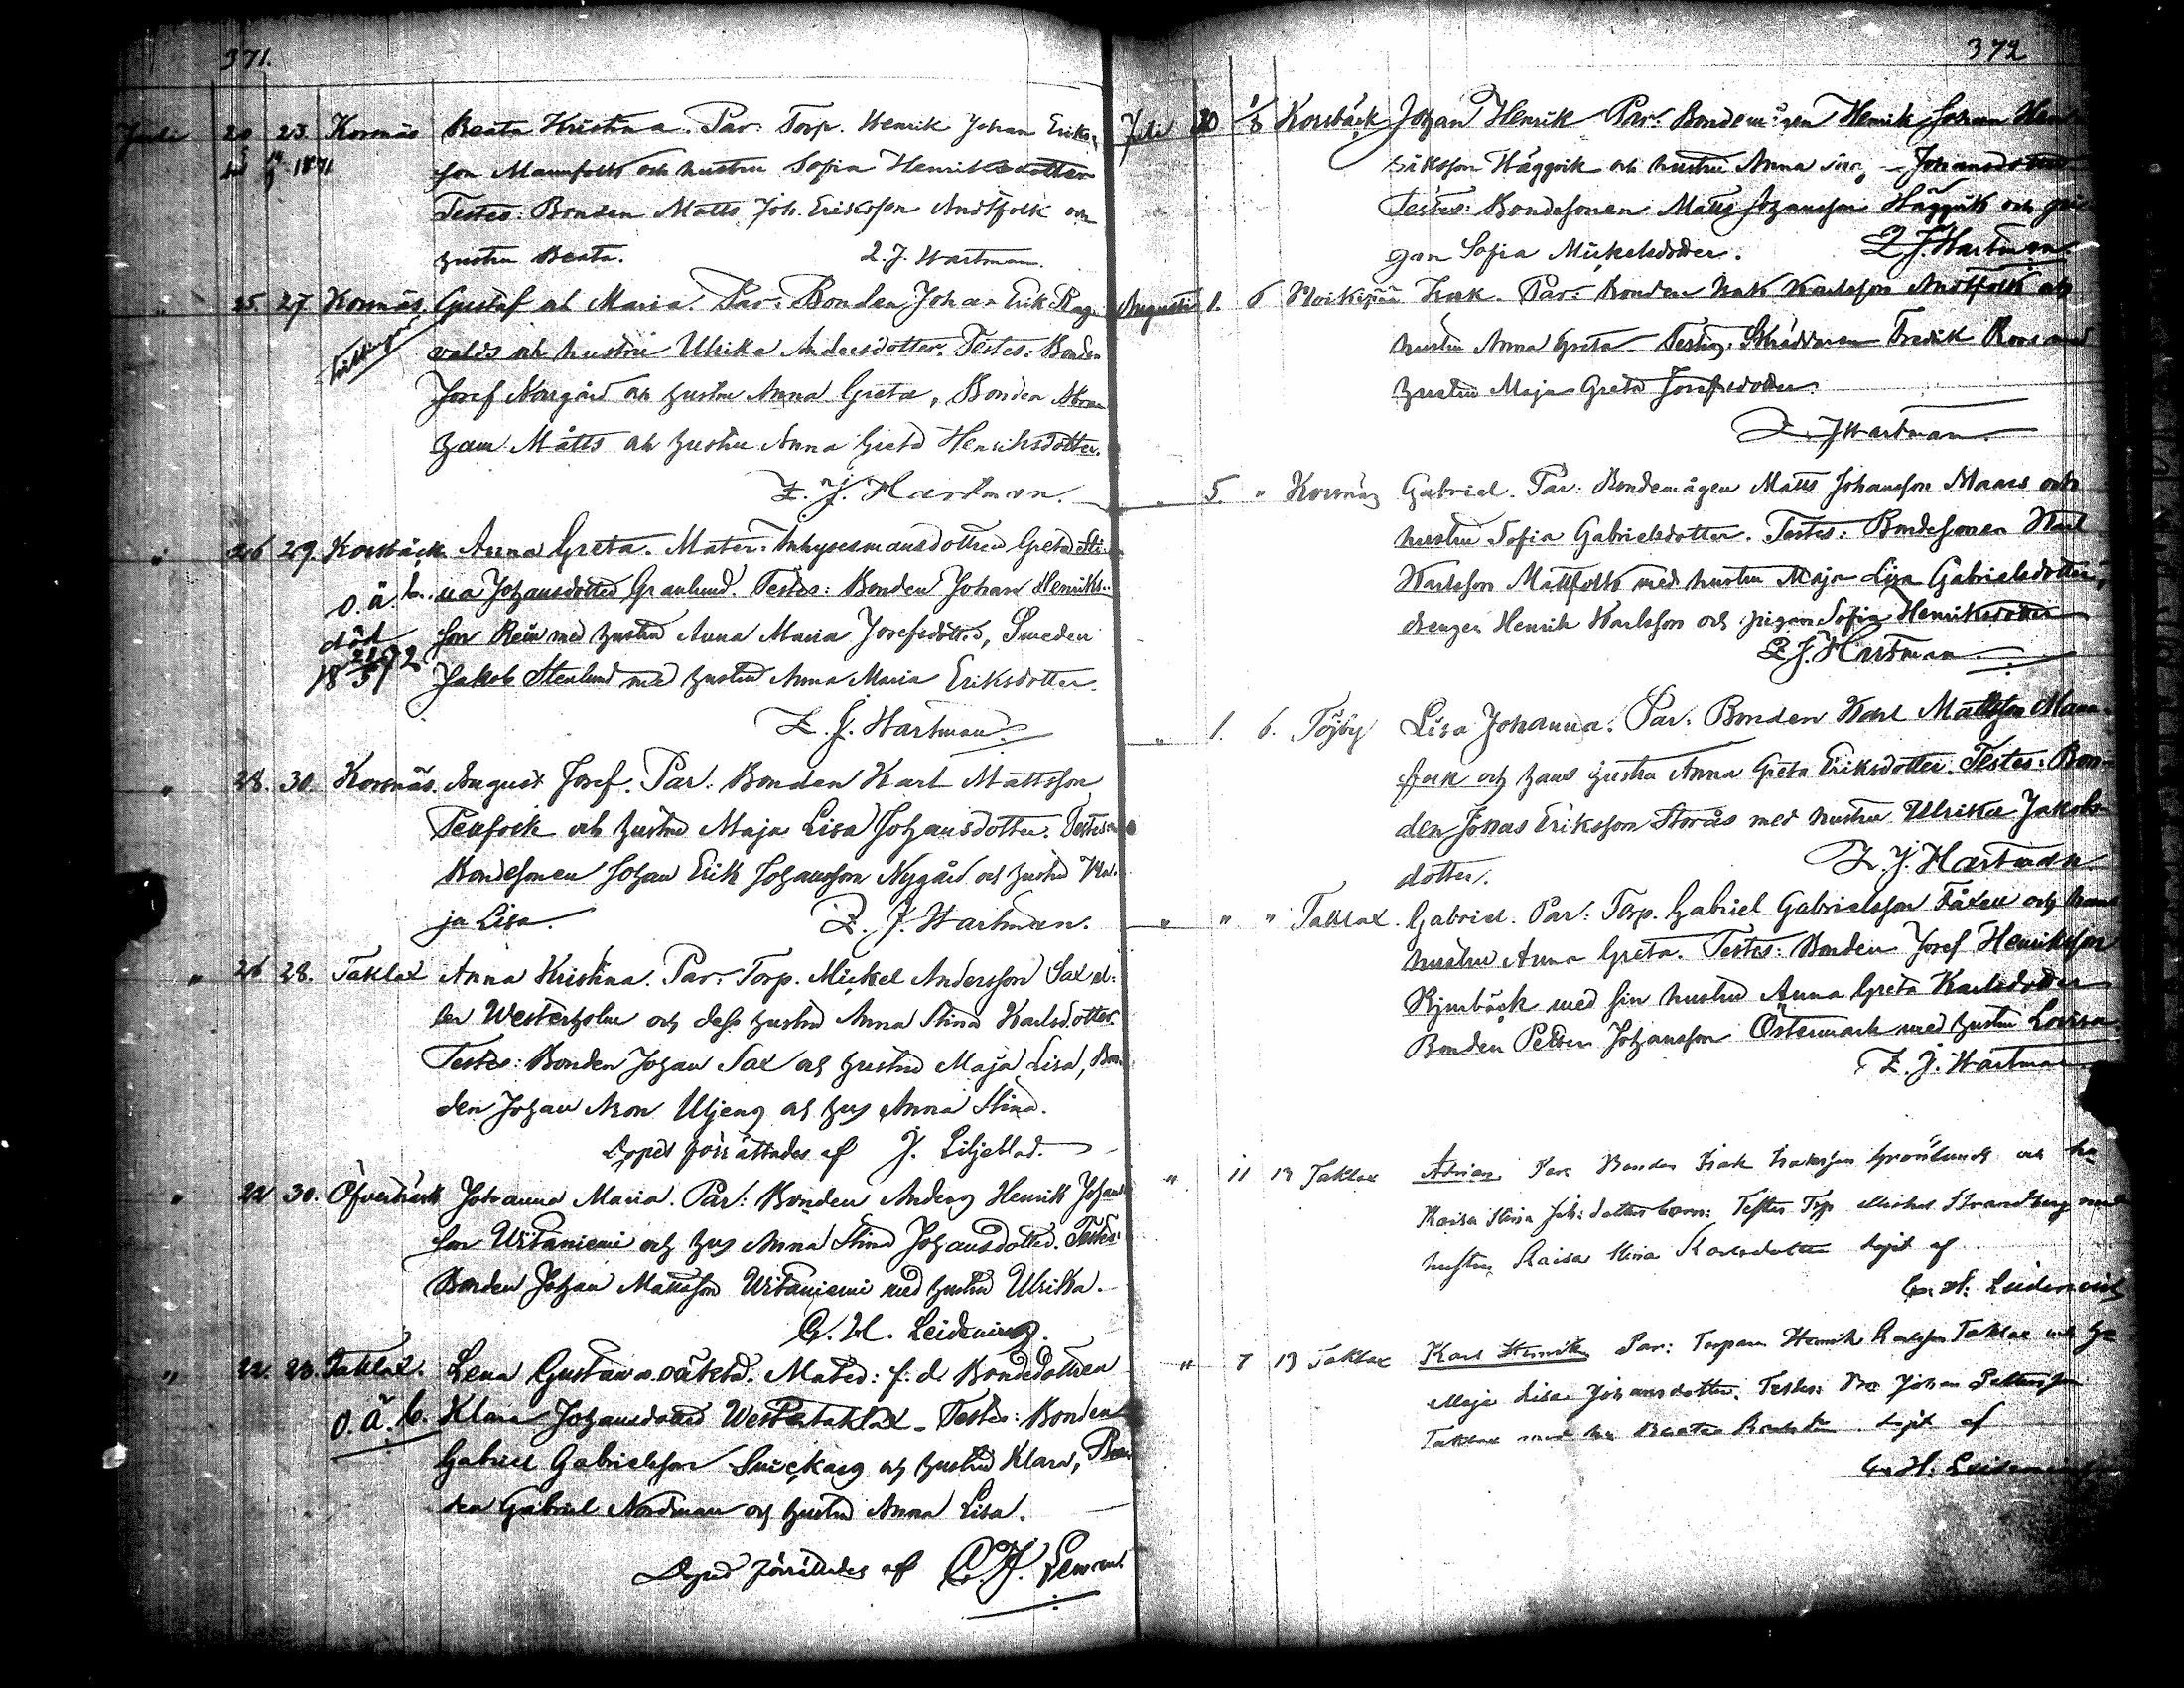 371.
Juli 20 23. Korsnäs Beata Kristina. Par: Torp. Henrik Johan Eriks-
son Mannfolk och hustru Sofia Henriksdotter
Testes: Bonden Matts Joh. Eriksson Andtfolk och
hustru Beata. Z. J. Hartman.
" 25. 27. Korsnäs. Gustaf och Maria. Par: Bonden Johan Erik Rag-
tvillingar
valds och hustru Ulrika Andersdotter. Testes: Bonden
Josef Norrgård och hustru Anna Greta, Bonden Abra-
ham Mätts och hustru Anna Greta Henriksdotter.
Z. J. Hartman.
" 26 29. Korsbäck Anna Greta. Mater: Inhysesmansdottren Greta Sti-
o. ä. b. na Johansdotter Granlund. Testes: Bonden Johan Henriks-
död son Rein med hustru Anna Maria Josefsdotter, Smeden
18 21/5 72 Jakob Stenlund med hustru Anna Maria Eriksdotter.
Z. J. Hartman.
" 28. 30. Korsnäs. August Josef. Par: Bonden Karl Mattsson
och hustru Maja Lisa Johansdotter. Testes:
Bondesonen Johan Erik Johansson Nygård och hustru Ma-
ja Lisa. Z. J. Hartman.
" 26 28. Taklax Anna Kristina. Par: Torp. Mickel Andersson Sax el-
ler Westerholm och dess hustru Anna Stina Karlsdotter.
Testes: Bonden Johan Sax och hustru Maja Lisa, Bon-
den Johan Aron Utjeng och hus Anna Stina.
Dopet förrättades af J. Liljeblad.
" 22 30. Öfverbäck Johanna Maria. Par: Bonden Anders Henrik Johans-
son Uitaniemi och hus Anna Stina Johansdotter. Testes:
Bonden Johan Mattsson Uitaniemi med hustru Ulrika.
G. H. Leidenius.
" 22. 23. Taklax. Lena Gustava oäkta. Mater: f. d. Bondedottren
o. ä. b. Klara Johansdotter Westertaklax. Testes: Bonden
Gabriel Gabrielsson Snickars och hustru Klara, Bon-
den Gabriel Nordman och hustru Anna Lisa.
Dopet förrättades af
372
Juli 30 Korsbäck Johan Henrik Par: Bondemågen Henrik Johan Hen-
riksson Häggvik och hustru Anna Johansdotter
Testes: Bondesonen Matts Johansson Häggvik och pi-
gan Sofia Mickelsdotter. Z J. Hartman.
Augusti 1. 6 Isak. Par: Bonden Isak Karlsson Andtfolk och
hustru Anna Greta. Testes: Skräddaren Fredrik Roos med
hustru Maja Greta Josefsdotter.
Z. J Hartman.
" 5 " Korsnäs Gabriel. Par: Bondemågen Matts Johansson Maars och
hustru Sofia Gabrielsdotter. Testes: Bondesonen Karl
Karlsson Mattfolk med hustru Maja Lisa Gabrielsdotter,
drengen Henrik Karlsson och pigan Sofia Henriksdotter
Z. J. Hartman.
" 1. 6. Töjby Lisa Johanna. Par: Bonden Karl Mattsson Mann-
folk och hans hustru Anna Greta Eriksdotter. Testes: Bon-
den Jonas Eriksson Storås med hustru Ulrika Jakobs-
dotter. Z. J. Hartman
" " " Taklax. Gabriel. Par: Torp. Gabriel Gabrielsson och hans
hustru Anna Greta. Testes: Bonden Josef Henriksson
med sin hustru Anna Greta Karlsdotter
Bonden Petter Johansson Östermark med hustru Lovisa.
Z. J. Hartman.
" 11 13 Taklax Adrian Par: Bonden Isak Isaksson Grönlunds och hu
Kaisa Stina Joh: dotters barn: Testes Torp Michel Strandberg med
hustru Kaisa Stina Karlsdotter döpt af
G. H. Leidenius
" 7 13 Taklax Karl Henrik Par: Torparen Henrik Karlsson Taklax och hu
Maja Lisa Johansdotter. Testes: Johan Pettersson
Taklax med hu Beata döpt af
G. H. Leidenius